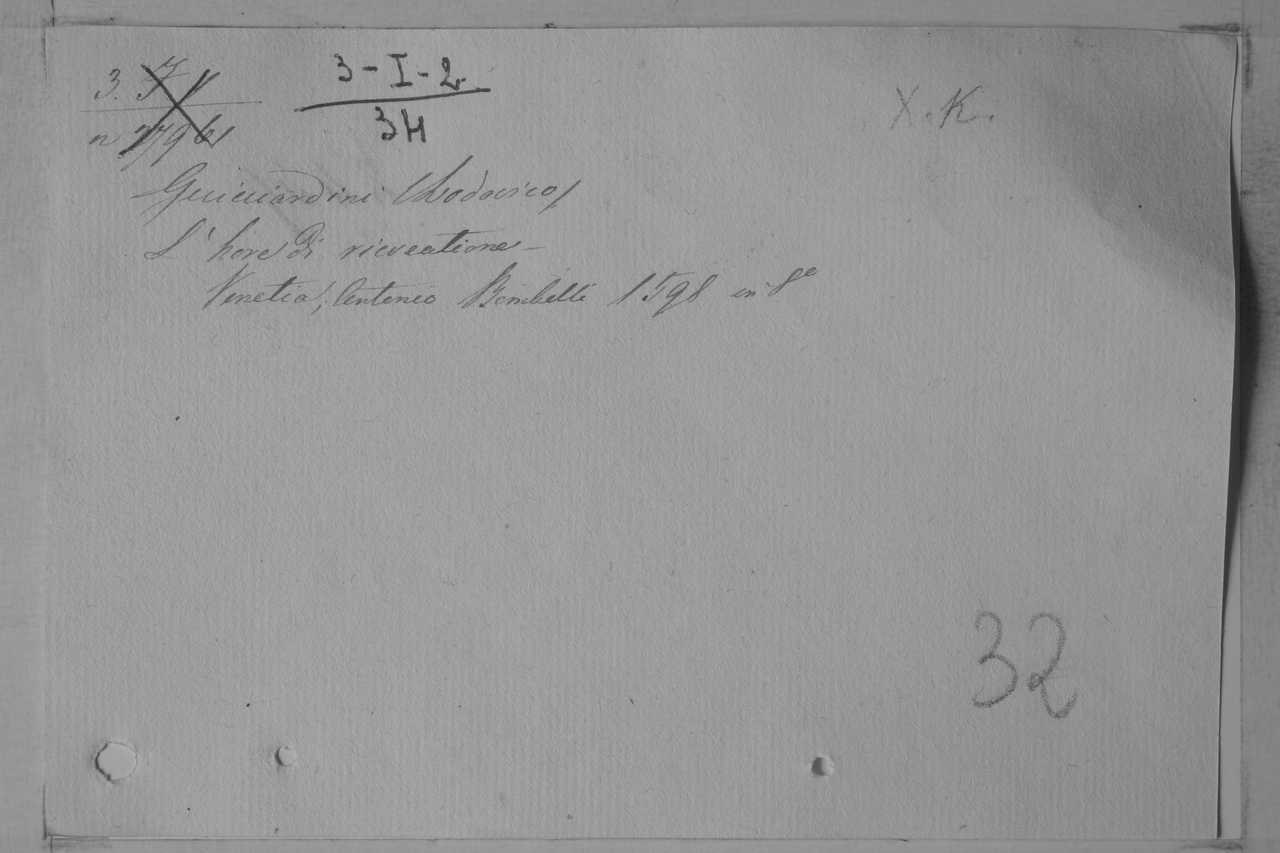 3-I-2
34
X. K.
Guicciardini (Lodovico)
L'hore di ricreatione
Venetia, Antonio Bombelli 1598 in 8°
32